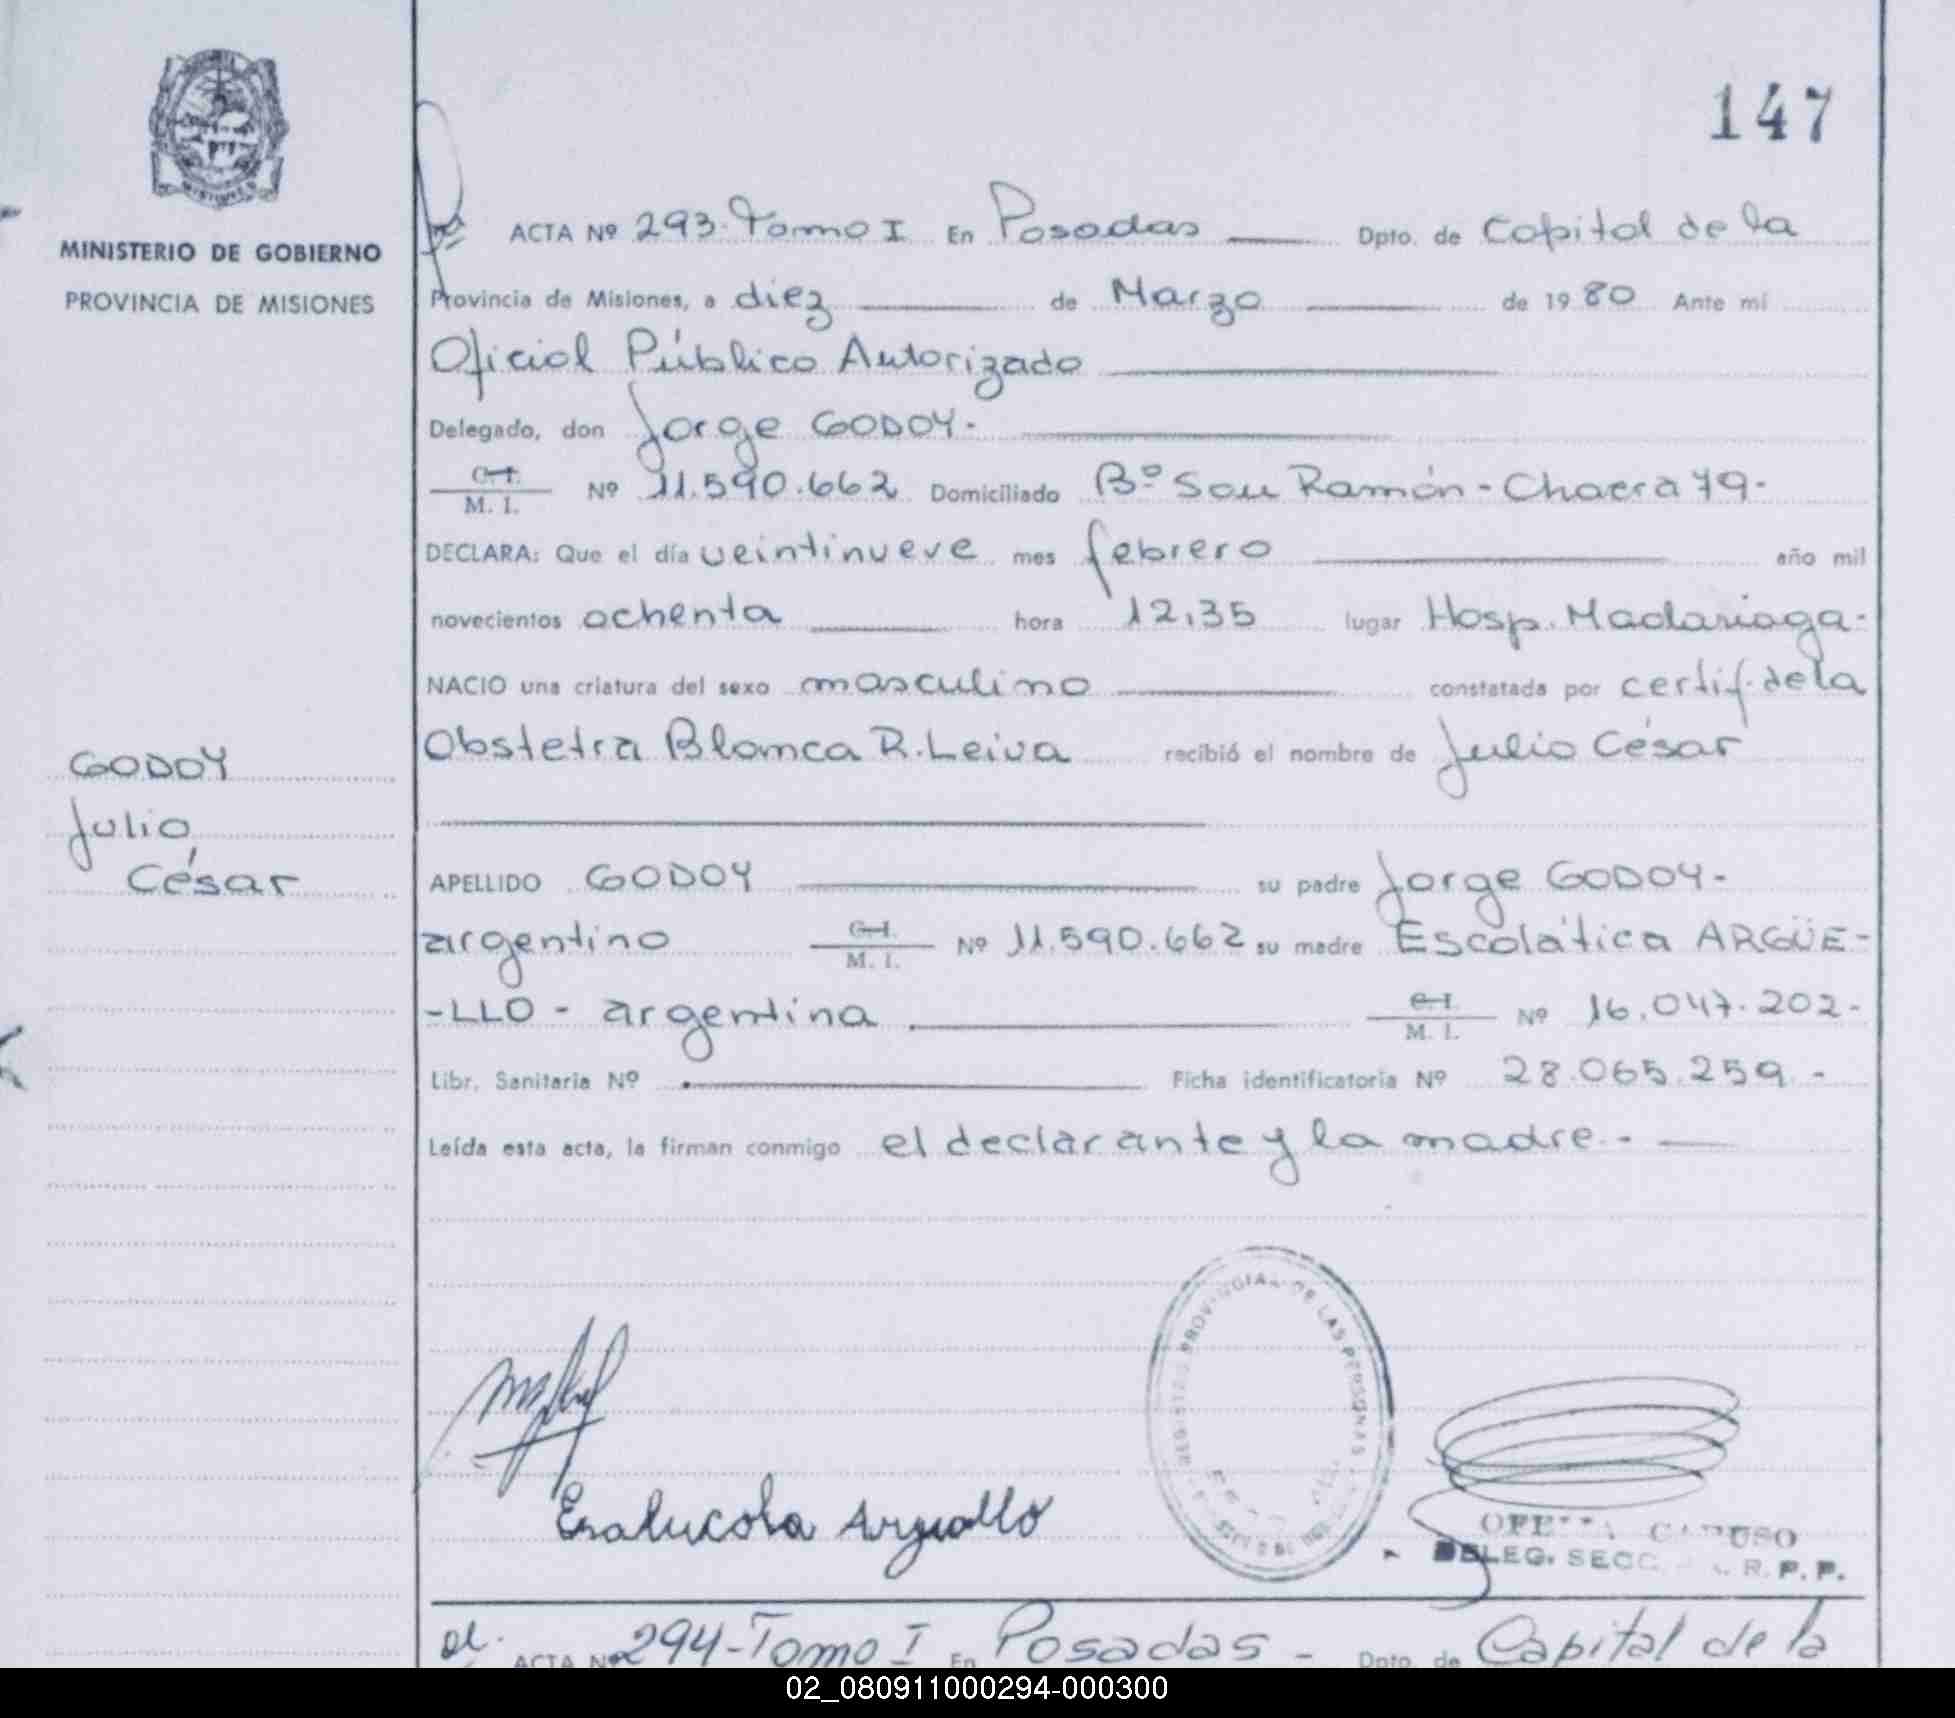 147
MINISTERIO DE GOBIERNO
PROVINCIA DE MISIONES
GODOY
Julio
César
ACTA Nº 293-Tomo I En Posadas Dpto. de Capital de la
Provincia de Misiones, a diez de Marzo de 1980 Ante mí
Oficial Público Autorizado
Delegado, don Jorge GODOY.
C.I.
M. I. Nº 11.590.662 Domiciliado Bº San Ramón - Chacra 79.
DECLARA: Que el día veintinueve mes febrero año mil
novecientos ochenta hora 12,35 lugar Hosp. Madariaga.
NACIO una criatura del sexo masculino constatada por certif. de la
Obstetra Blanca R. Leiva recibió el nombre de Julio César
APELLIDO GODOY su padre Jorge GODOY-
argentino C.I.
M. I. Nº 11.590.662 su madre Escolática ARGÜE-
-LLO - argentina C.I.
M. I. Nº 16.047.202-
Libr. Sanitaria Nº Ficha identificatoria Nº 28.065.259.-
Leída esta acta, la firman conmigo el declarante y la madre.-
PROVINCIAL DE LAS PERSONAS
DELEG. SECC. R. P. P.
ACTA Nº 294-Tomo I En Posadas - Dpto. de Capital de la
02_080911000294-000300